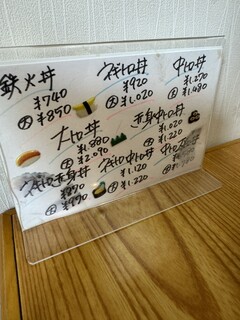 鉄火丼
¥740
大 ¥850
ネギトロ丼
¥920
大 ¥1,020
中トロ丼
¥1,270
大 ¥1,480
大トロ丼
¥1,880
大 ¥2,090
赤身中トロ丼
¥1,020
大 ¥1,220
ネギトロ赤身丼
¥870
大 ¥970
ネギトロ中トロ丼
¥1,120
大 ¥1,220